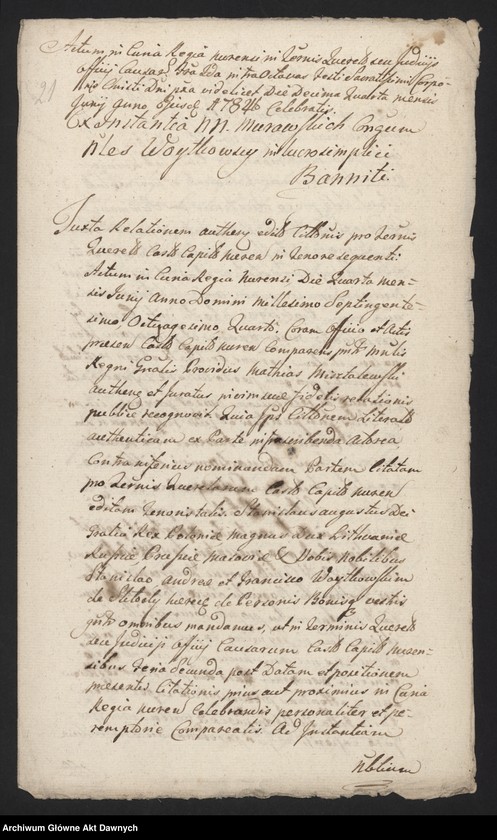 Actum in Curia Regia Nurensi in Terminis Querell seu Judicij
officij Causar feria 2da intra Octavas Festi Sacratissimi Corpo=
ris Christi Dni pxa videlicet Die Decima Quarta mensis
Junij Anno ejusq 1784to Celebratis.
21
Constantia NN. Murawskich Congum
Nles Woytkowscy in lucro simplici
Banniti.
Juxta Relationem authen editt Cittonis pro Termis
Querell Castr Capitt Nuren in tenore sequenti:
Actum in Curia Regia Nurensi Die Quarta men=
sis Junij Anno Domini Millesimo Septingente=
simo Octuagesimo Quarto. Coram officio et Actis
presen Castr Capitt Nuren Comparens Mntlis
Regni Gnalis Providus Mathias
authens et juratus in vim suae fidelis relationis
publice recognovit Quia ipse Cittonem Literalt
authenticam ex Parte infrascribenda Actorea
Contra inferius nominandam Partem Citatam
pro Termis Querelarum Castr Capitt Nuren
editam tenoris talis. Stanislaus Augustus Dei
Gratia Rex Poloniae magnus Dux Lithvaniae
Russiae Prussiae Masoviae & Vobis Nobilibus
Stanislao Andreae et Francisco Woytkowskim
de haered de Personis Bonisq vestris
omnibus mandamus, ut in Terminis Querell
seu Judicij officij Causarum Castr Capitt Nuren=
sibus feria secunda post Datam et positionem
praesentis Citationis prius aut proximius in Curia
Regia Nuren Celebrandis personaliter et pe=
remptorie Compareatis. Ad Instantiam
Nblium
Archiwum Główne Akt Dawnych